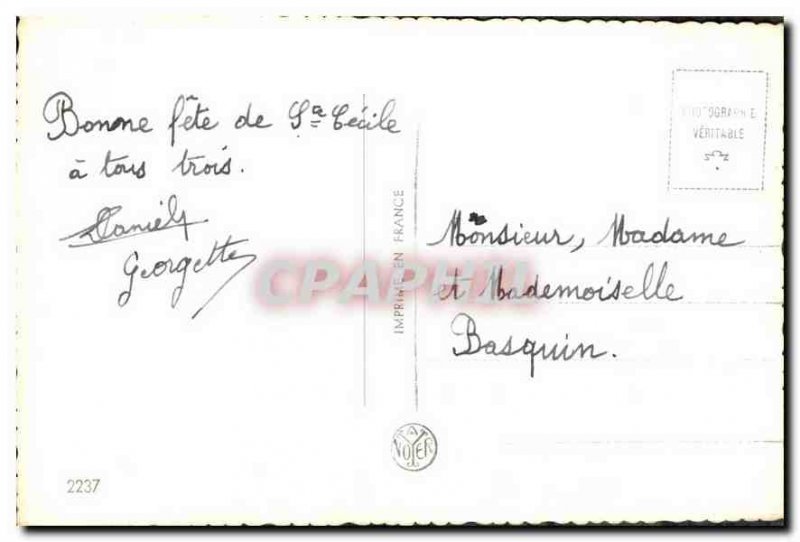 Bonne fête de Ste Cécile
à tous trois.
Daniel
Georgette
IMPRIMÉ EN FRANCE
PHOTOGRAPHIE
VÉRITABLE
Monsieur, Madame
et Mademoiselle
Basquin.
2237
CPAPHIL